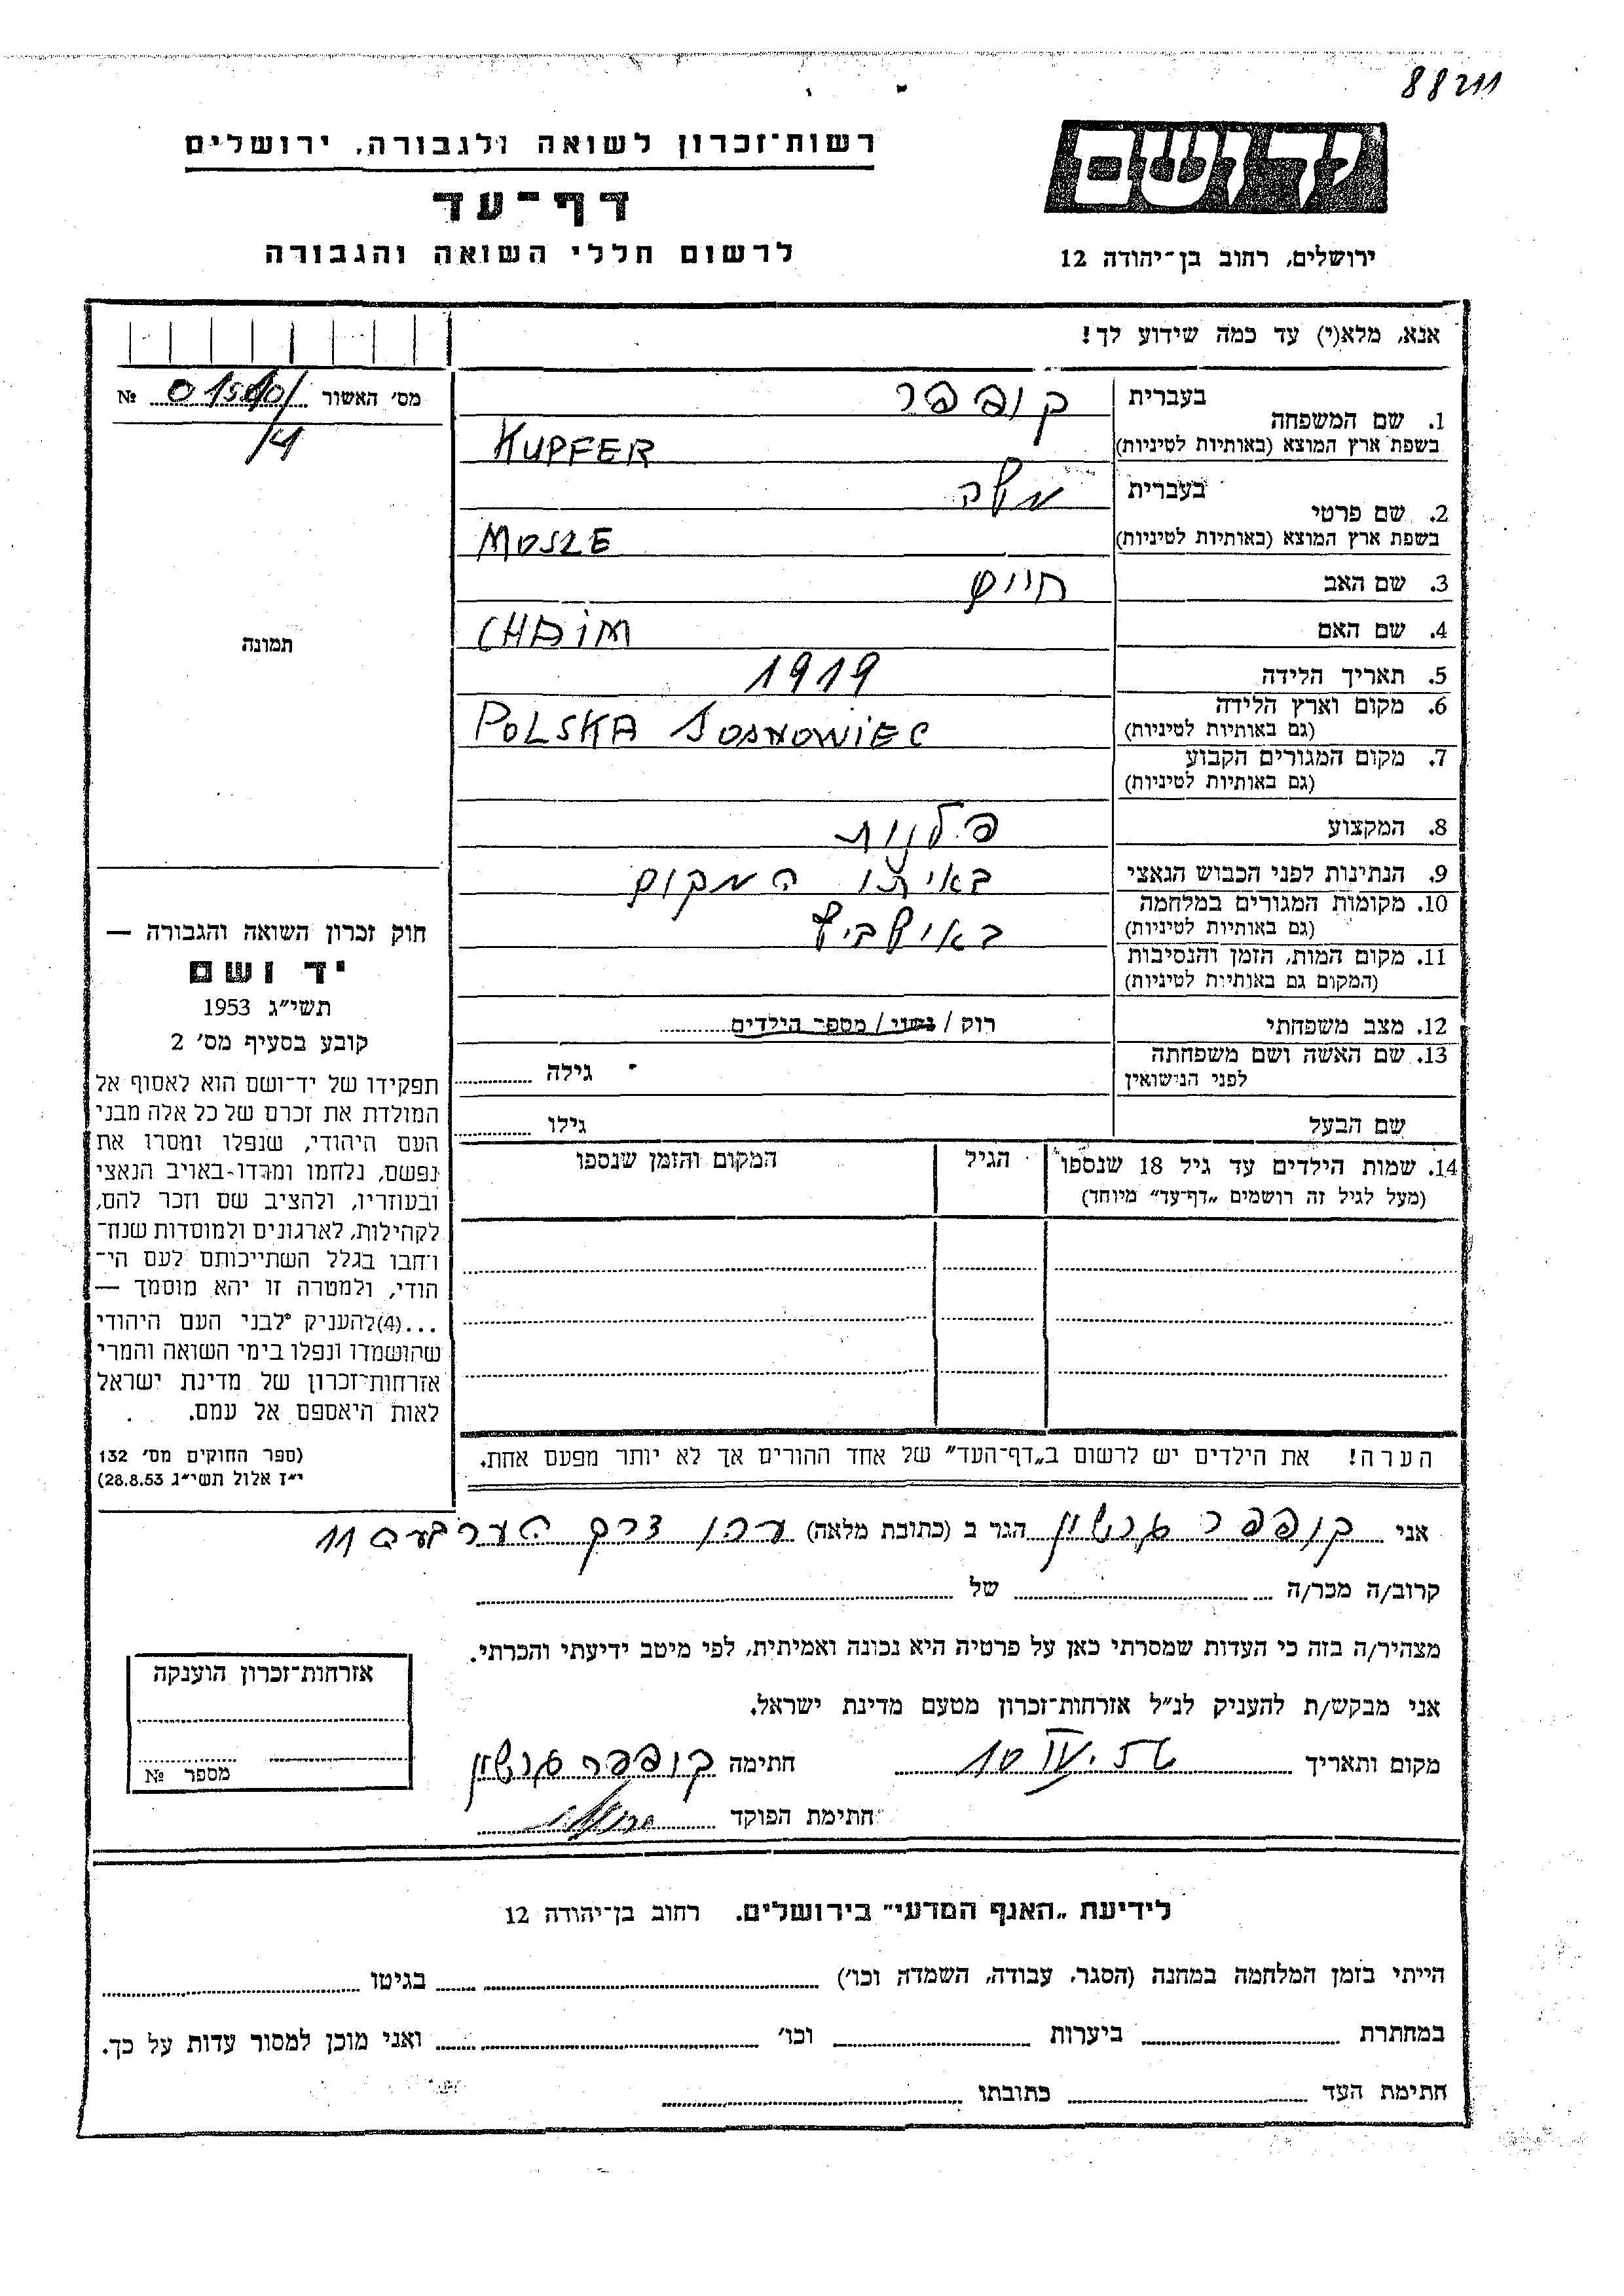 88211
רשות־זכרון לשואה ולגבורה, ירושלים
דף־עד
לרשום חללי השואה והגבורה
ידושם
ירושלים, רחוב בן־יהודה 12
אנא, מלא(י) עד כמה שידוע לך!
מס׳ האשור № 01500/
/4
תמונה
חוק זכרון השואה והגבורה —
יד ושם
תשי״ג 1953
קובע בסעיף מס׳ 2
תפקידו של יד־ושם הוא לאסוף אל
המולדת את זכרם של כל אלה מבני
העם היהודי, שנפלו ומסרו את
נפשם, נלחמו ומרדו באויב הנאצי
ובעוזריו, ולהציב שם וזכר להם,
לקהילות, לארגונים ולמוסדות שנח־
רחבו בגלל השתייכותם לעם הי־
הודי, ולמטרה זו יהא מוסמך —
...(4)להעניק לבני העם היהודי
שהושמדו ונפלו בימי השואה והמרי
אזרחות־זכרון של מדינת ישראל
לאות היאספם אל עמם.
(ספר החוקים מס׳ 132
י״ז אלול תשי״ג 28.8.53)
1. שם המשפחה בעברית קופפר
בשפת ארץ המוצא (באותיות לטיניות) KUPFER
2. שם פרטי בעברית משה
בשפת ארץ המוצא (באותיות לטיניות) MOSZE
3. שם האב חיים
4. שם האם CHAIM
5. תאריך הלידה 1919
6. מקום וארץ הלידה
(גם באותיות לטיניות) POLSKA SOSNOWIEC
7. מקום המגורים הקבוע
(גם באותיות לטיניות)
8. המקצוע
9. הנתינות לפני הכבוש הנאצי באותו המקום
10. מקומות המגורים במלחמה
(גם באותיות לטיניות) באושביץ
11. מקום המות, הזמן והנסיבות
(המקום גם באותיות לטיניות)
12. מצב משפחתי רוק / נשוי / מספר הילדים
13. שם האשה ושם משפחתה
לפני הנישואין גילה
שם הבעל גילו
14. שמות הילדים עד גיל 18 שנספו הגיל המקום והזמן שנספו
(מעל לגיל זה רושמים „דף־עד״ מיוחד)
הערה! את הילדים יש לרשום ב„דף־העד״ של אחד ההורים אך לא יותר מפעם אחת.
אני קופפר גרשון הגר ב (כתובת מלאה) דרך הערבעם 11
קרוב/ה מכר/ה של
מצהיר/ה בזה כי העדות שמסרתי כאן על פרטיה היא נכונה ואמיתית, לפי מיטב ידיעתי והכרתי.
אני מבקש/ת להעניק לנ״ל אזרחות־זכרון מטעם מדינת ישראל.
מקום ותאריך 10 חתימה קופפר גרשון
חתימת הפוקד
אזרחות־זכרון הוענקה
מספר №
לידיעת „האגף המדעי״ בירושלים. רחוב בן־יהודה 12
הייתי בזמן המלחמה במחנה (הסגר, עבודה, השמדה וכו׳) בגיטו
במחתרת ביערות וכו׳ ואני מוכן למסור עדות על כך.
חתימת העד כתובתו